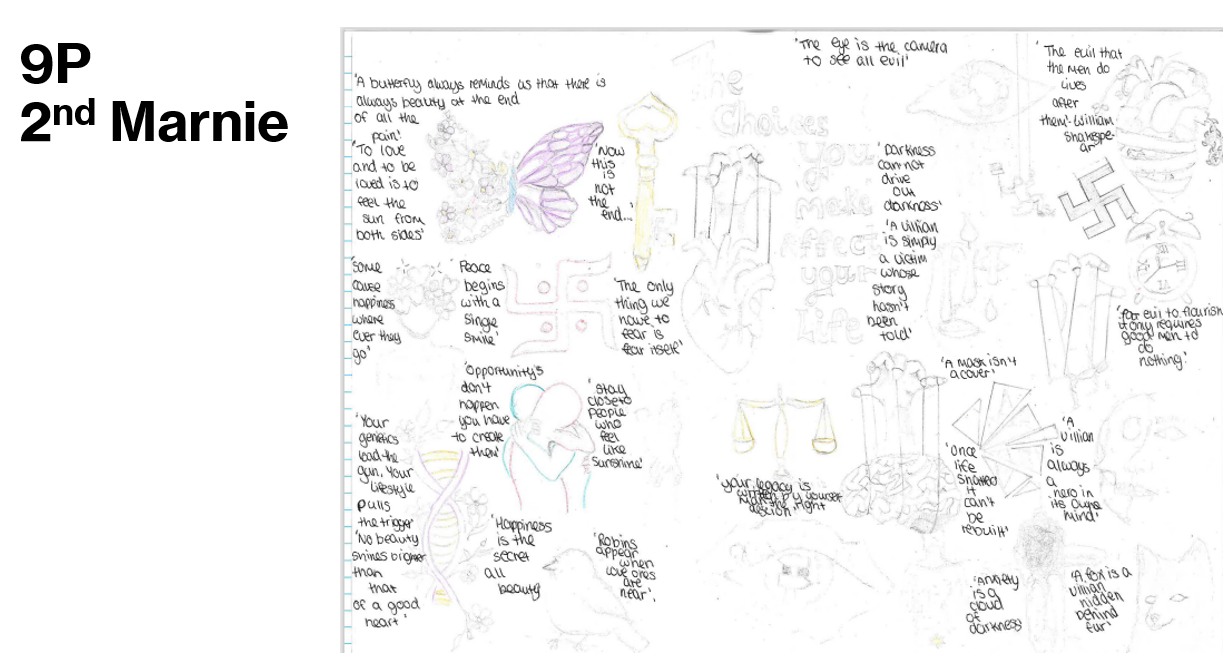 9P
2nd Marnie
'A butterfly always reminds us that there is
always beauty at the end
of all the
pain'
'To love
and to be
loved is to
feel the
sun from
both sides'
'Now
this
is
not
the
end...'
The
Choices
you
made
effect
your
Life
'The eye is the camera
to see all evil'
'The evil that
the men do
lives
after
them'-William
Shakespe-
ar
'Darkness
can-not
drive
out
darkness'
'A villian
is simply
a victim
whose
story
hasn't
been
told'
'Some
cause
happiness
where
ever they
go'
'Peace
begins
with a
single
smile'
'The only
thing we
have to
fear is
fear itself'
'for evil to flourish
it only requires
good men to
do
nothing.'
'Opportunity's
don't
happen
you have
to create
them'
'Stay
close to
people
who
feel
like
Sunshine'
'A mask isn't
a cover'
'Your
genetics
load the
gun, Your
lifestyle
pulls
the trigger'
'your legacy is
written by yourself
make the right
'Once
life
shatters
it
can't
be
rebuilt'
'A
villian
is
always
a
hero in
its owne
mind'
'No beauty
shines brighter
than
that
of a good
heart'
'Happiness
is the
secret
all
beauty
'Robins
appear
when
love ones
are
near'.
'Anxiety
is a
cloud
of
darkness
'A fox is a
villian
hidden
behind
fur'